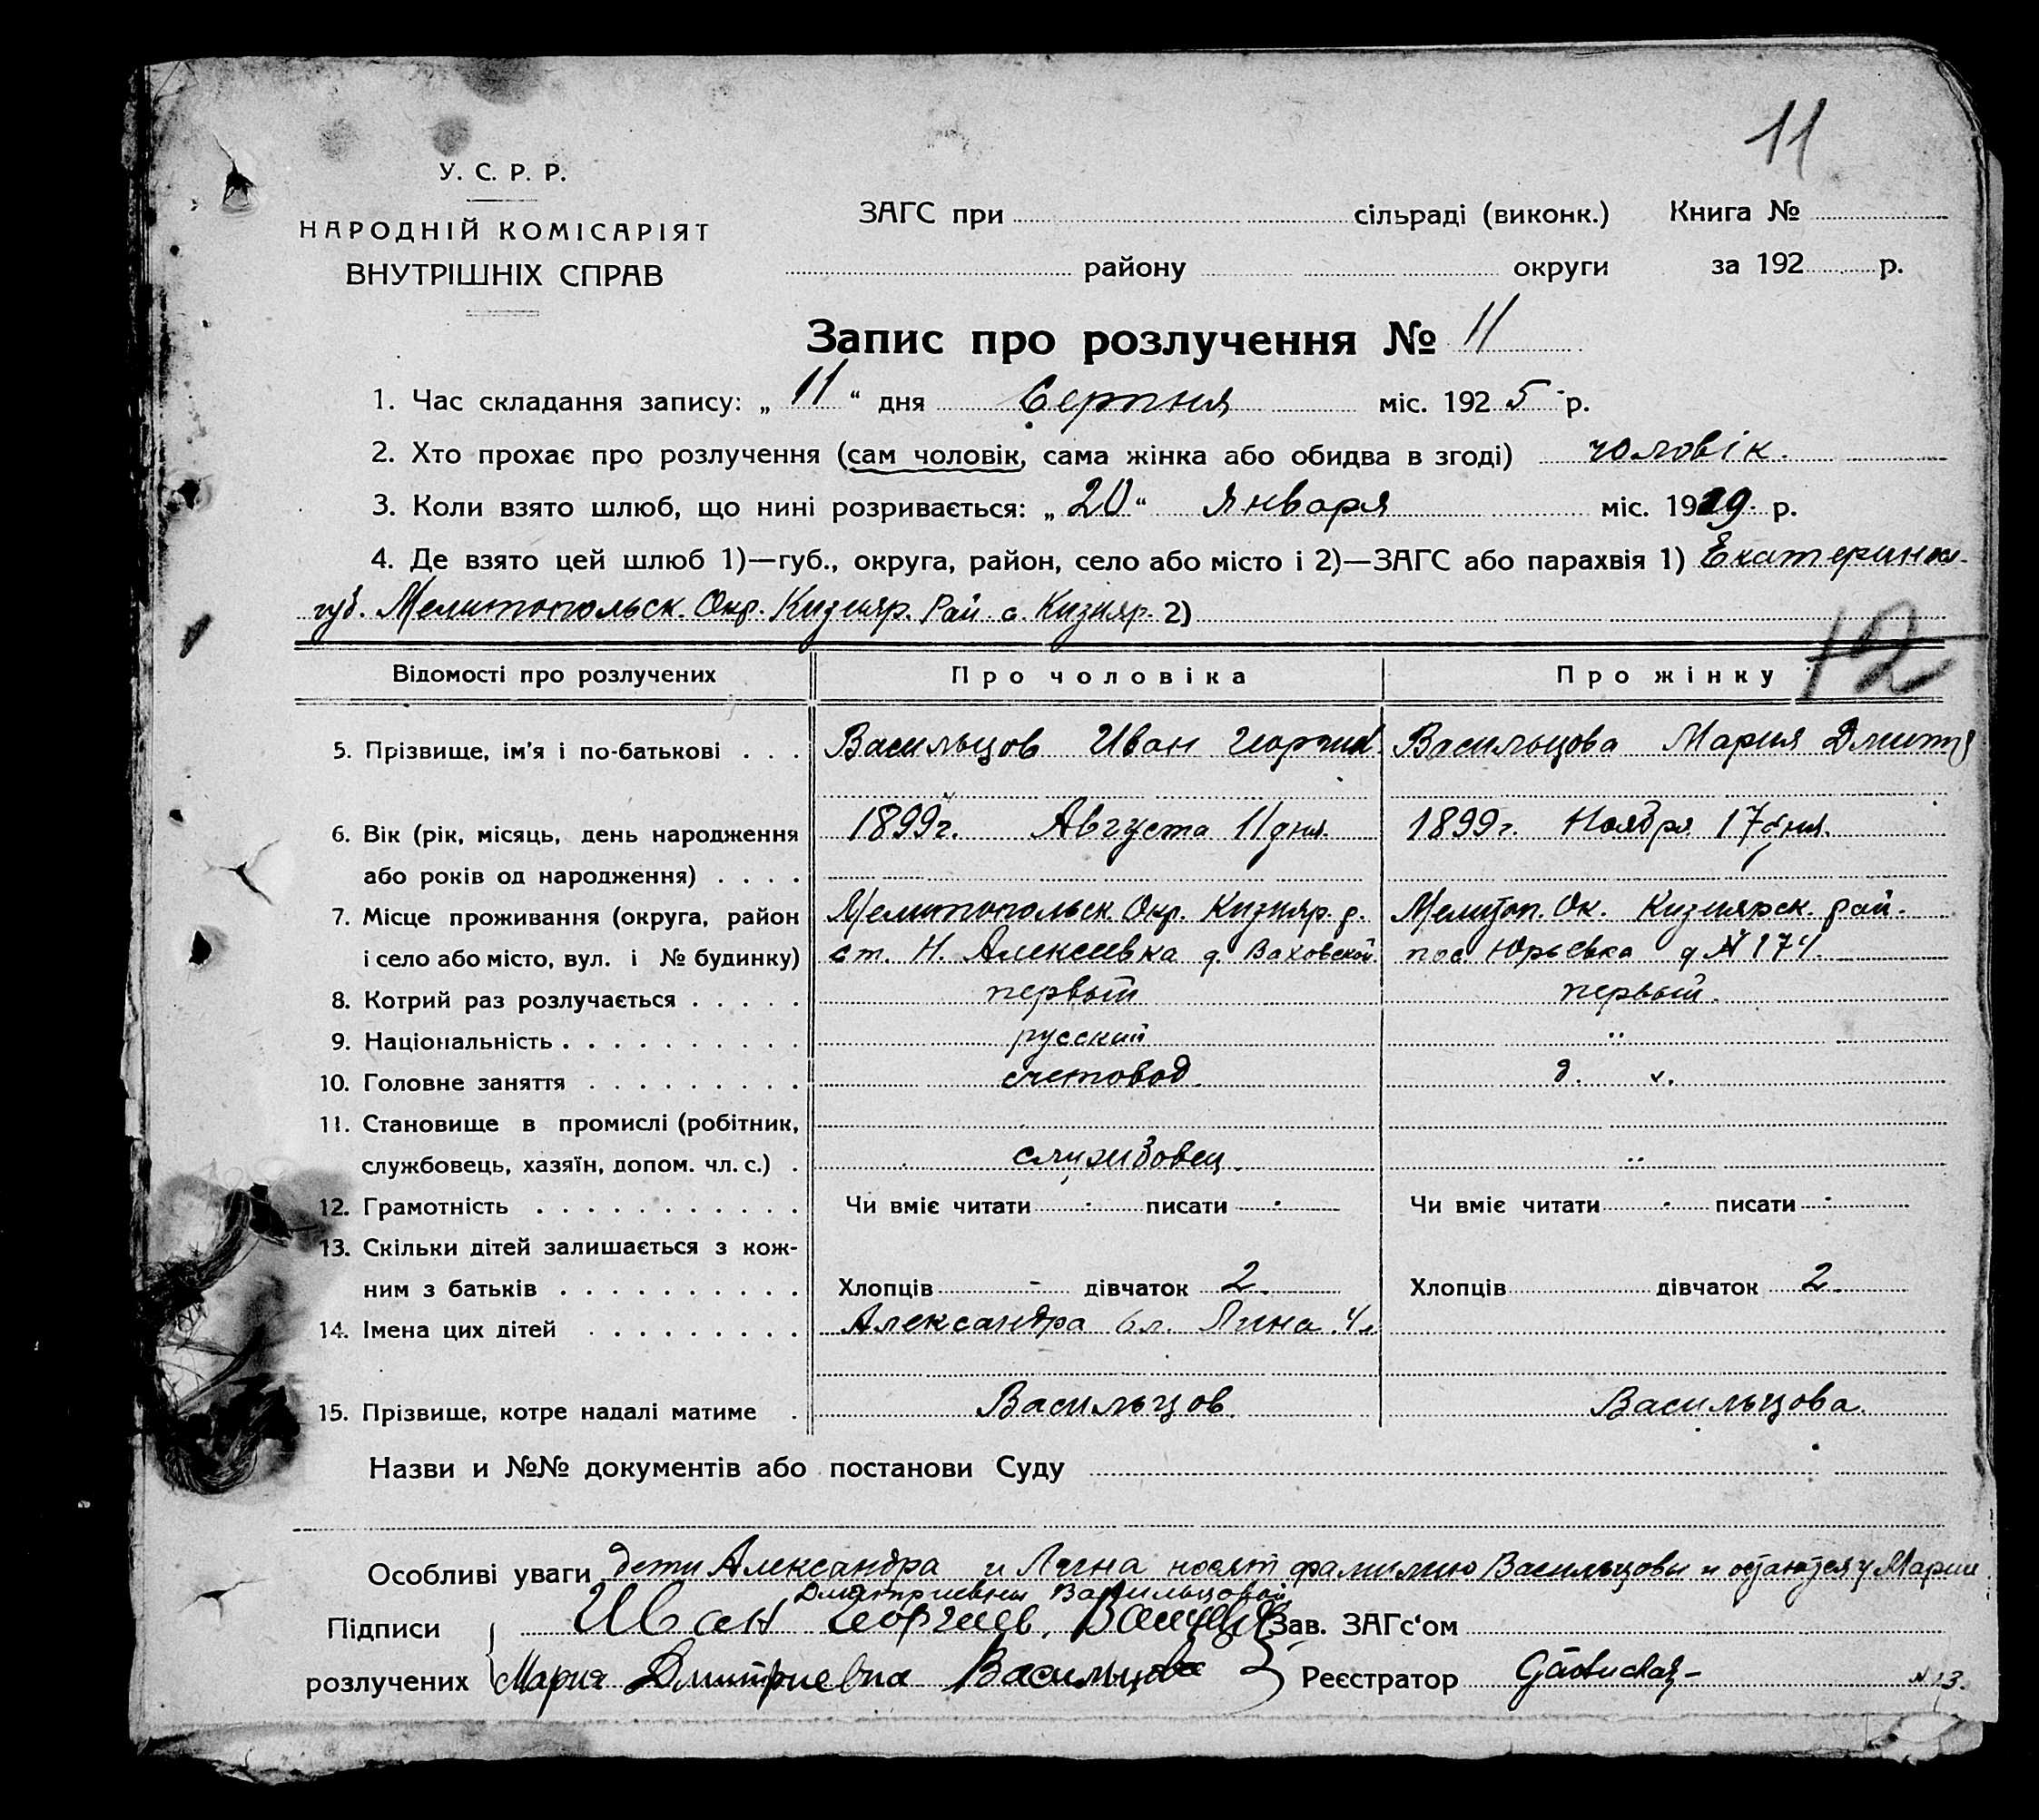 11
У. С. Р. Р.
НАРОДНІЙ КОМІСАРІЯТ
ВНУТРІШНІХ СПРАВ
ЗАГС при сільраді (виконк.) Книга №
району округи за 192 р.
Запис про розлучення № 11
1. Час складання запису: „ 11 “ дня Серпня міс. 192 5 р.
2. Хто прохає про розлучення (сам чоловік, сама жінка або обидва в згоді) чоловік.
3. Коли взято шлюб, що нині розривається: „ 20 “ Января міс. 1919 р.
4. Де взято цей шлюб 1)—губ., округа, район, село або місто і 2)—ЗАГС або парахвія 1) Екатеринosл.
губ. Мелитопольск. Окр. Кизияр. Рай. с. Кизияр. 2)
12
Відомості про розлучених Про чоловіка Про жінку
5. Прізвище, ім'я і по-батькові . . . Васильцов Иван Георгиев Васильцова Мария Дмитр
6. Вік (рік, місяць, день народження 1899 г. Августа 11 дня. 1899 г. Ноября 17 дня.
або років од народження) . . . .
7. Місце проживання (округа, район Мелитопольск. Окр. Кизияр. р. Мелитоп. Ок. Кизиярск. рай.
і село або місто, вул. і № будинку) ст. Н. Алексеевка д. Ваховской пос Юрьевка д № 174.
8. Котрий раз розлучається . . . . . первый первый.
9. Національність . . . . . . . . . . русский "
10. Головне заняття . . . . . . . . . счетовод. д. х.
11. Становище в промислі (робітник,
службовець, хазяїн, допом. чл. с.) . службовец. "
12. Грамотність . . . . . . . . . . . Чи вміє читати писати Чи вміє читати писати
13. Скільки дітей залишається з кож-
ним з батьків . . . . . . . . . . Хлопців - дівчаток 2. Хлопців дівчаток 2.
14. Імена цих дітей . . . . . . . . . Александра 6 л. Лина 4 л
15. Прізвище, котре надалі матиме . Васильцов. Васильцова.
Назви и №№ документів або постанови Суду
Особливі уваги дети Александра и Лина носят фамилию Васильцовы и остаются у Марии
Дмитриевны Васильцовой
Підписи Иван Георгиев. Зав. ЗАГс‘ом
розлучених Мария Дмитриевна Васильцова Реєстратор